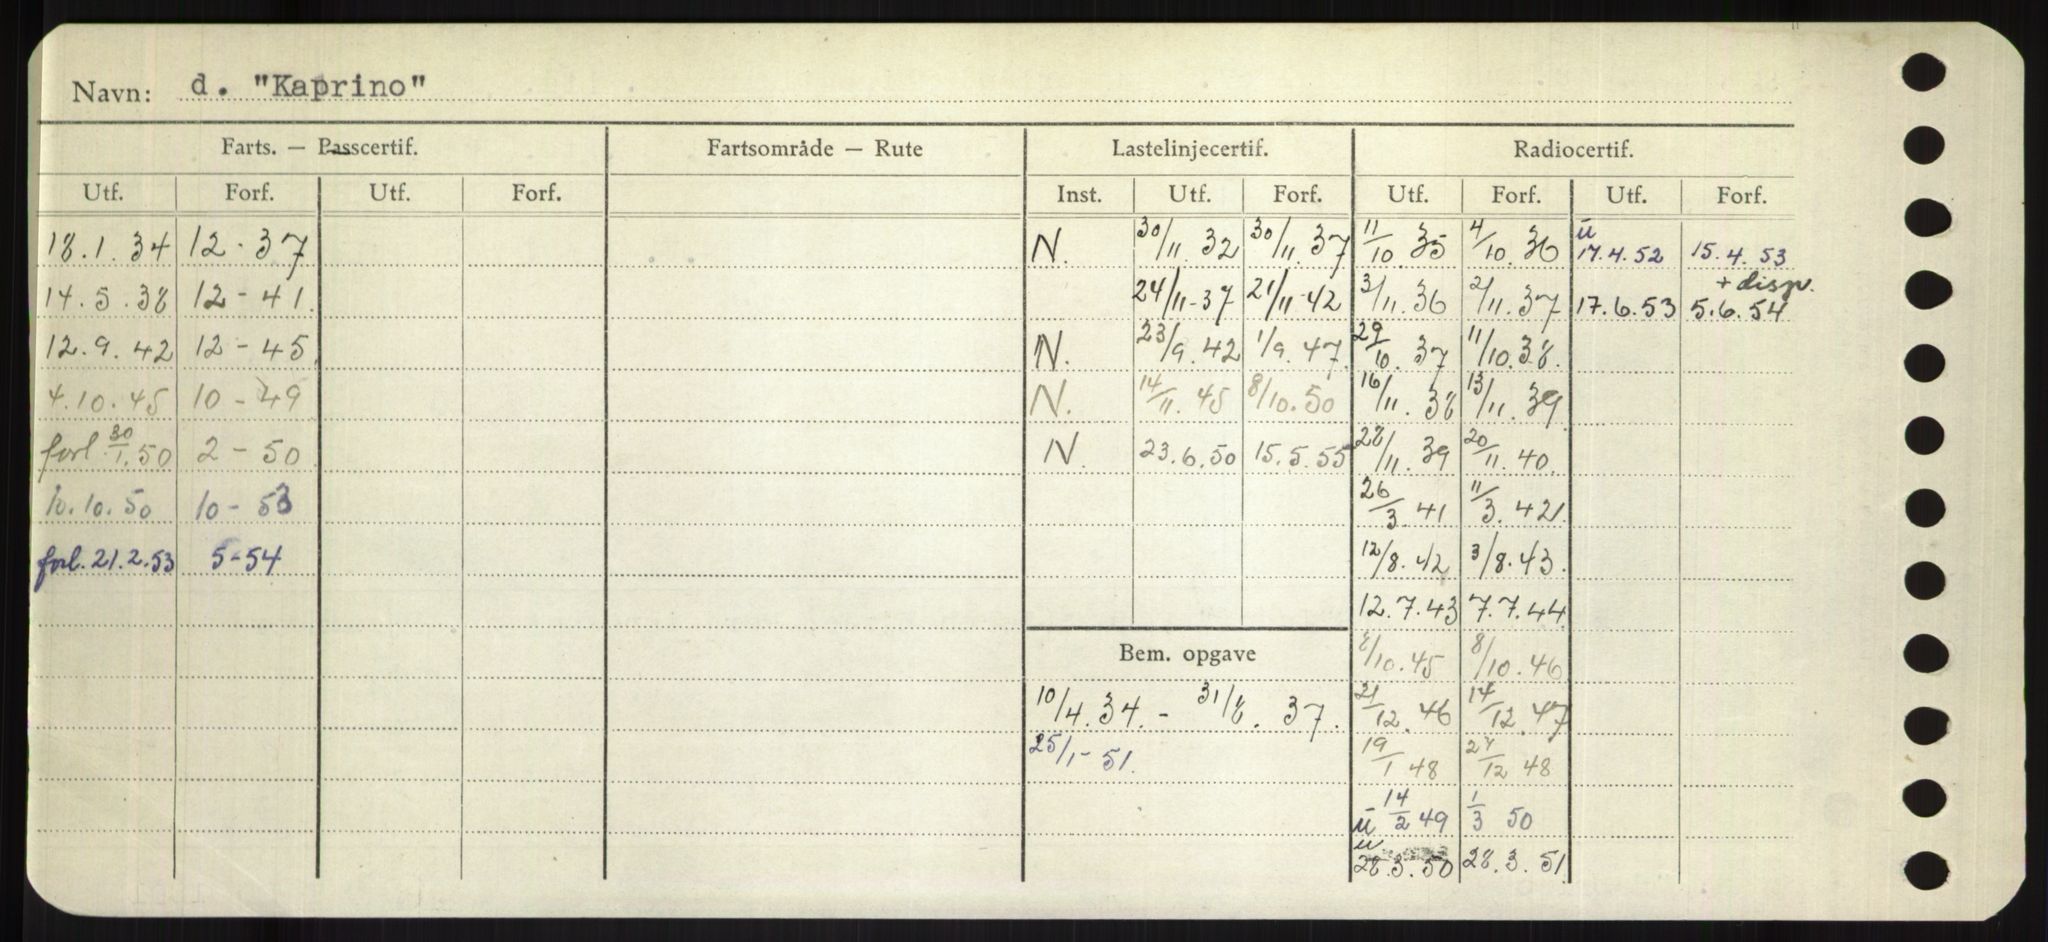 Navn: d. "Kaprino"
Farts. — Passcertif. Fartsområde — Rute Lastelinjecertif. Radiocertif.
Utf. Forf. Utf. Forf. Inst. Utf. Forf. Utf. Forf. Utf. Forf.
18.1.34 12-37 N. 30/11 32 30/11 37 11/10 35 4/10 36 ū 17.4.52 15.4.53
+ disp.
14.5.38 12-41 24/11-37 21/11-42 3/11 36 2/11.37 17.6.53 5.6.54
12.9.42 12-45 N. 23/9.42 1/9.47 29/10 37 11/10 38.
4.10.45 10-49 N. 14/11.45 8/10.50 16/11.38 13/11.39
forl 30/1.50 2-50 N. 23.6.50 15.5.55 28/11.39 20/11.40
10.10.50 10-53 26/3.41 11/3.421
forl. 21.2.53 5-54 12/8.42 3/8.43.
12.7.43 7.7.44
Bem. opgave 8/10.45 8/10.46
10/4.34. - 31/8. 37. 21/12.46 14/12.47
25/1-51. 19/1 48 28/12 48
ū 14/2 49 1/3 50
ū
28.3.50 28.3.51